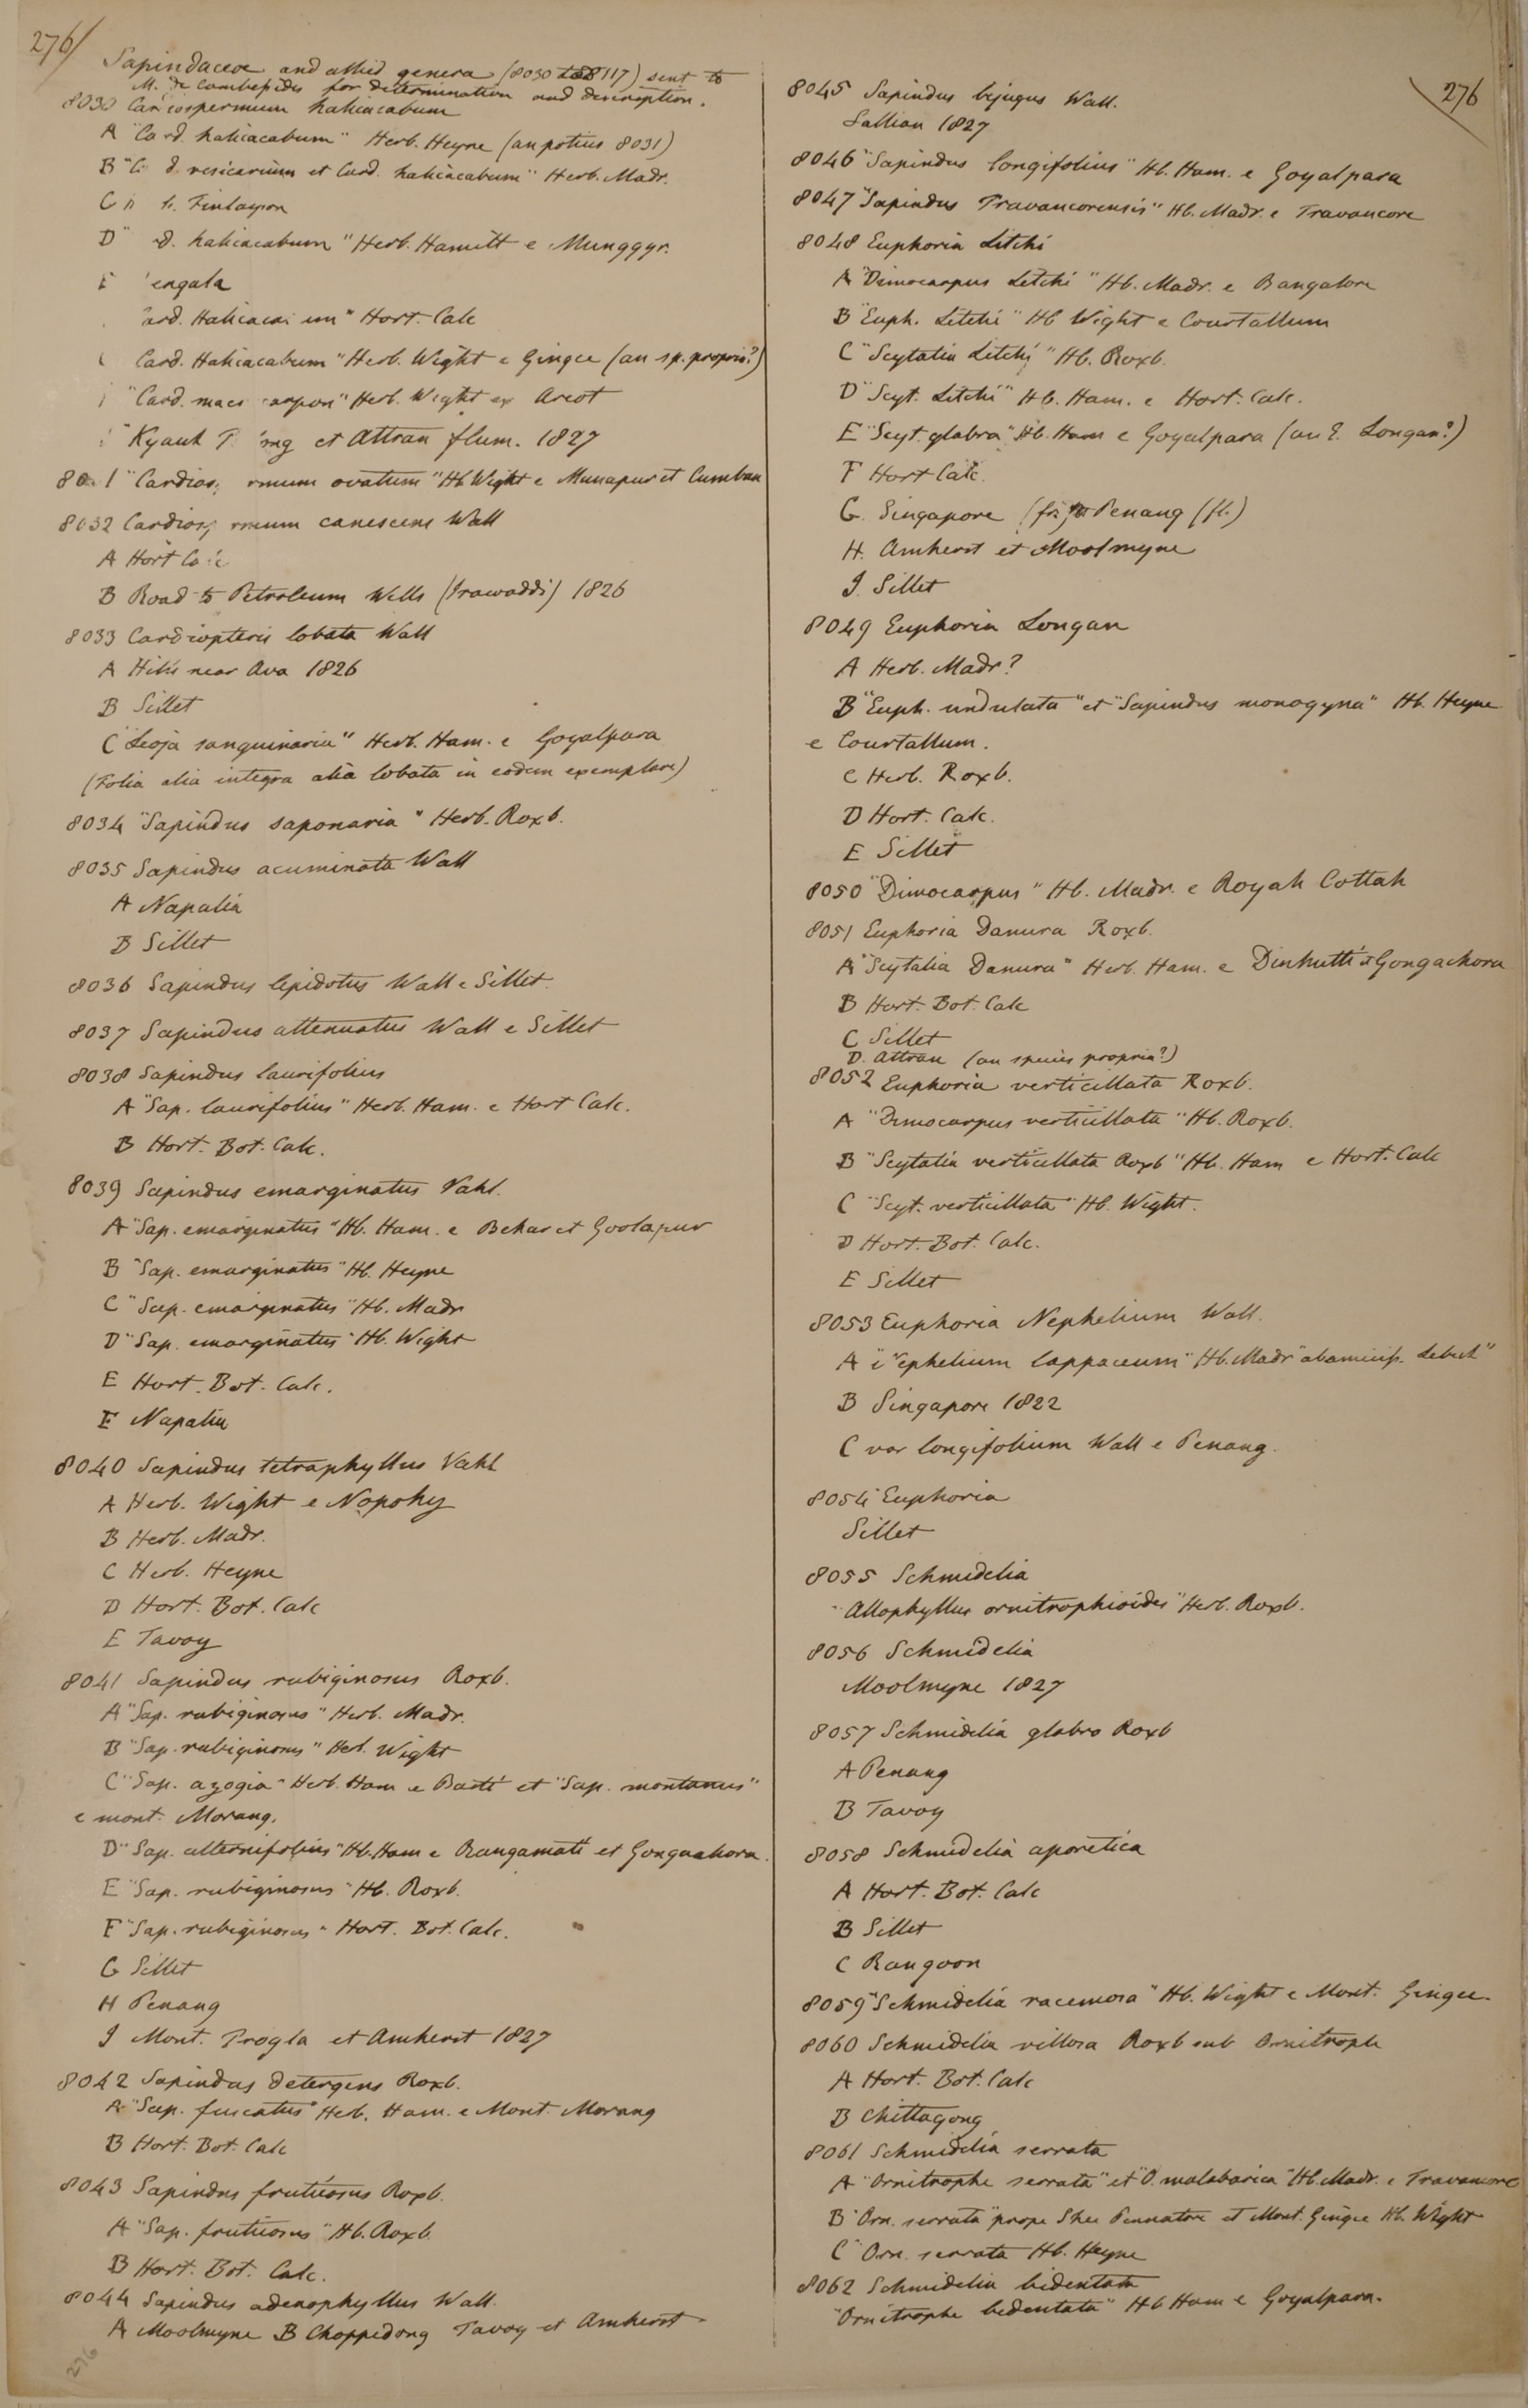 276/
Sapindaceae and allied genera (8030 to 8117) sent to
M. de Cambessédes for determination and description.
8030 Cardiospermum halicacabum
A "Card. halicacabum" Herb. Heyne (an potius 8031)
B "C d. vesicarium et Card. halicacabum" Herb. Madr.
C Finlayson
D " d. halicacabum" Herb. Hamilt e Munggyr.
E engala
ard. Halicaca um" Hort. Calc
Card. Halicacabum" Herb. Wight e Gingee (an sp. propria?)
"Card. mac carpon" Herb. Wight ex Arcot
Kyauk T ng et Attran flum. 1827
80 1 "Cardios rmum ovatum" Hb Wight e Munapur et Cumbau
8032 Cardiosp rmum canescens Wall
A Hort Calc
B Road to Petroleum Wells (Irawaddi) 1826
8033 Cardiopteris lobata Wall
A Hills near Ava 1826
B Sillet
C "Leoja sanguinaria" Herb. Ham. e Goyalpara
(Folia alia integra alia lobata in eodem exemplare)
8034 "Sapindus saponaria" Herb. Roxb.
8035 Sapindus acuminata Wall
A Napalia
B Sillet
8036 Sapindus lepidotus Wall e Sillet.
8037 Sapindus attenuatus Wall e Sillet
8038 Sapindus laurifolius
A "Sap. laurifolius" Herb. Ham. e Hort Calc.
B Hort. Bot. Calc.
8039 Sapindus emarginatus Vahl.
A "Sap. emarginatus" Hb. Ham. e Behar et Goolapur
B "Sap. emarginatus" Hb. Heyne
C "Sap. emarginatus" Hb. Madr
D "Sap. emarginatus" Hb. Wight
E Hort. Bot. Calc.
F Napalia
8040 Sapindus tetraphyllus Vahl
A Herb. Wight e Nopoky
B Herb. Madr.
C Herb. Heyne
D Hort. Bot. Calc
E Tavoy
8041 Sapindus rubiginosus Roxb.
A "Sap. rubiginosus" Herb. Madr.
B "Sap. rubiginosus" Herb. Wight
C "Sap. azogia" Herb. Ham e Basti et "Sap. montanus"
e mont. Morang.
D "Sap. alternifolius" Hb. Ham e Rangamati et Gongachora.
E "Sap. rubiginosus" Hb. Roxb.
F "Sap. rubiginosus" Hort. Bot. Calc.
G Sillet
H Penang
I Mont. Progla et Amherst 1827
8042 Sapindus detergens Roxb.
A "Sap. fuscatus" Herb. Ham. e Mont Morang
B Hort. Bot. Calc
8043 Sapindus fruticosus Roxb.
A "Sap. fruticosus" Hb. Roxb.
B Hort. Bot. Calc.
8044 Sapindus adenophyllus Wall.
A Moolmyne B Choppedong Tavoy et Amherst
276
276
8045 Sapindus bijugus Wall.
Sallian 1827
8046 "Sapindus longifolius" Hb. Ham. e Goyalpara
8047 "Sapindus Travancorensis" Hb. Madr. e Travancore
8048 Euphoria Litchi
A "Dimocarpus Litchi" Hb. Madr. e Bangalore
B "Euph. Litchi" Hb Wight e Courtallum
C "Scytalia Litchi" Hb. Roxb.
D "Scyt. Litchi" Hb. Ham. e Hort. Calc.
E "Scyt. glabra" Hb. Ham e Goyalpara (an E. Longan?)
F Hort Calc.
G. Singapore (fr.) et Penang (fl.)
H. Amherst et Moolmyne
I. Sillet
8049 Euphoria Longan
A Herb. Madr?
B "Euph. undulata" et "Sapindus monogyna" Hb. Heyne
e Courtallum.
C Herb. Roxb.
D Hort. Calc.
E Sillet
8050 "Dimocarpus" Hb. Madr. e Royah Cottah
8051 Euphoria Danura Roxb.
A "Scytalia Danura" Herb. Ham. e Dinhutti et Gongachora
B Hort. Bot. Calc
C Sillet
D. Attran (an species propria?)
8052 Euphoria verticillata Roxb.
A "Dimocarpus verticillata" Hb. Roxb.
B "Scytalia verticillata Roxb" Hb. Ham e Hort. Calc
C "Scyt. verticillata" Hb. Wight.
D Hort. Bot. Calc.
E Sillet
8053 Euphoria Nephelium Wall.
A "Nephelium lappaceum" Hb. Madr
B Singapore 1822
C var longifolium Wall e Penang.
8054 Euphoria
Sillet
8055 Schmidelia
"Allophyllus ornitrophioides" Herb. Roxb.
8056 Schmidelia
Moolmyne 1827
8057 Schmidelia glabra Roxb
A Penang
B Tavoy
8058 Schmidelia aporetica
A Hort. Bot. Calc
B Sillet
C Rangoon
8059 "Schmidelia racemosa" Hb. Wight e Mont. Gingee.
8060 Schmidelia villosa Roxb sub Ornitrophe
A Hort. Bot. Calc
B Chittagong
8061 Schmidelia serrata
A "Ornitrophe serrata" et "O. malabarica" Hb. Madr. e Travancore
B "Orn. serrata" prope Shee Pennatore et Mont. Gingee Hb. Wight
C "Orn. serrata Hb. Heyne
8062 Schmidelia bidentata
"Ornitrophe bidentata" Hb Ham e Goyalpara.